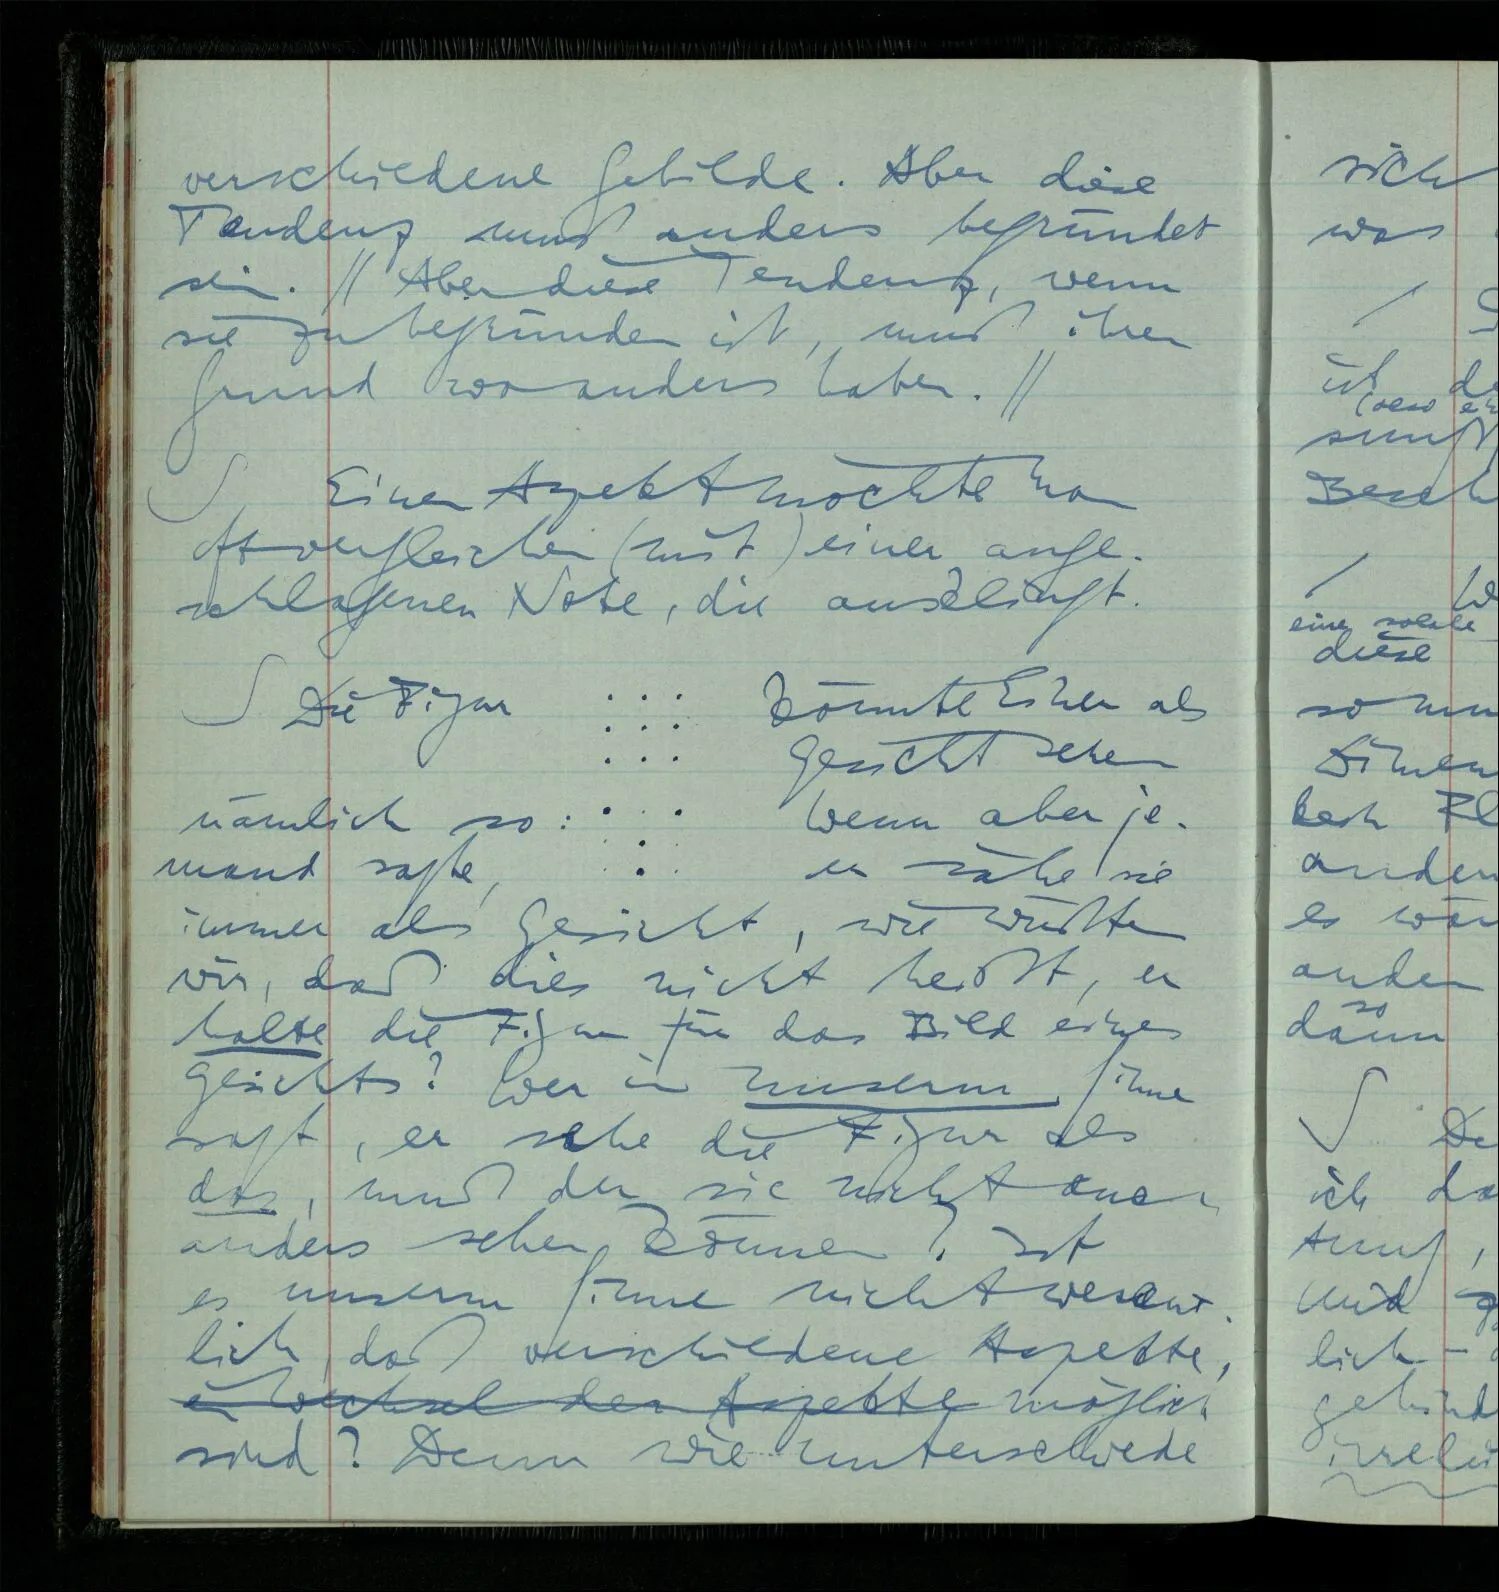 verschiedene Gebilde. Aber diese
Tendenz muß anders begründet
sein. // Aber diese Tendenz, wenn
sie zu begründen ist, muß ihren
Grund wo anders haben. //
∫ Einen Aspekt möchte man
oft vergleichen (mit) einer ange-
schlagenen Note, die ausklingt.
∫ Die Figur könnte Einer als
Gesicht sehen
nämlich so: Wenn aber je-
mand sagte, er sähe sie
immer als Gesicht, wie wüßten
wir, daß dies nicht heißt, er
halte die Figur für das Bild eines
Gesichts? Wer in unserm Sinne
sagt, er sehe die Figur als
das, muß der sie nicht auch
anders sehen können? Ist
es unserm Sinne nicht wesent-
lich, daß verschiedene Aspekte,
ein Wechsel der Aspekte möglich
sind? Denn wie unterschiede
sich
was
/
ist
/
eine solche
diese
so
andern
es wär
ander
so
dann
∫ De
ich da
und
lich –